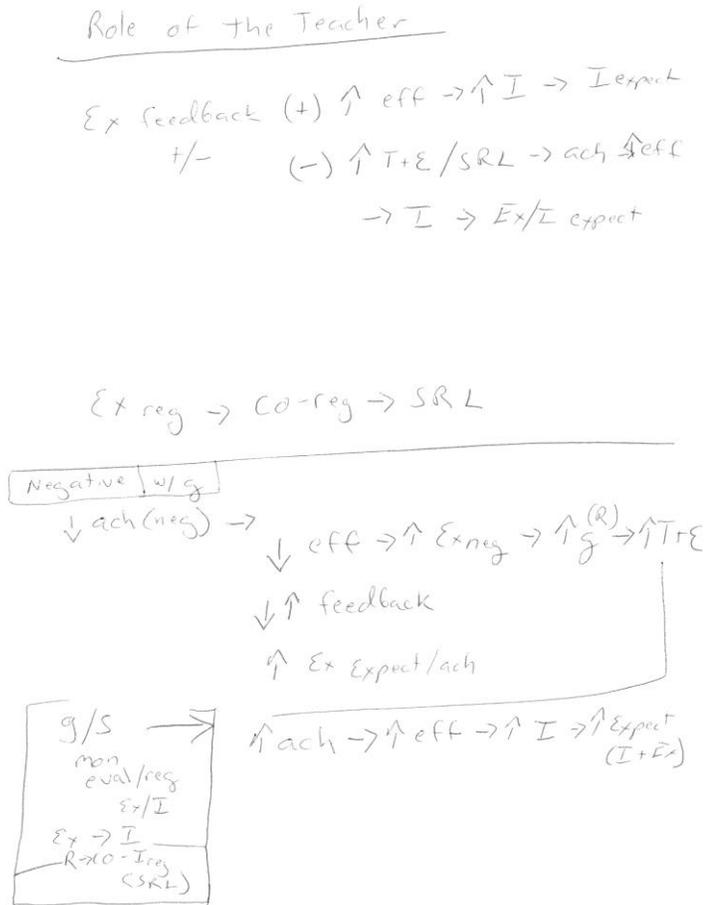 Role of the Teacher
Ex feedback (+) ↑ eff → ↑ I → I expect
+/- (-) ↑ T+E/SRL → ach ↑eff
→ I → Ex/I expect
Ex reg → Co-reg → SRL
Negative w/ g
↓ ach(neg) →
↓ eff → ↑ Ex neg → ↑ g (R) → ↑T+E
↓↑ feedback
↑ Ex Expect/ach
g/S →
↑ ach → ↑ eff → ↑ I → ↑ Expect
(I + Ex)
mon
eval/reg
Ex/I
Ex → I
R → CO - I reg
(SRL)